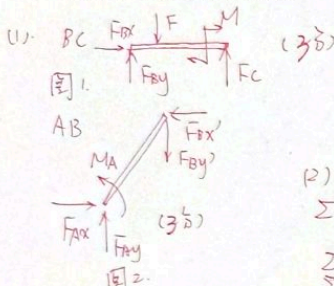 (1). BC FBX F M (3分)
FBy FC
图1.
AB FBX'
FBy'
MA
(2)
FAX (3分) Σ
FAy
图2. Σ